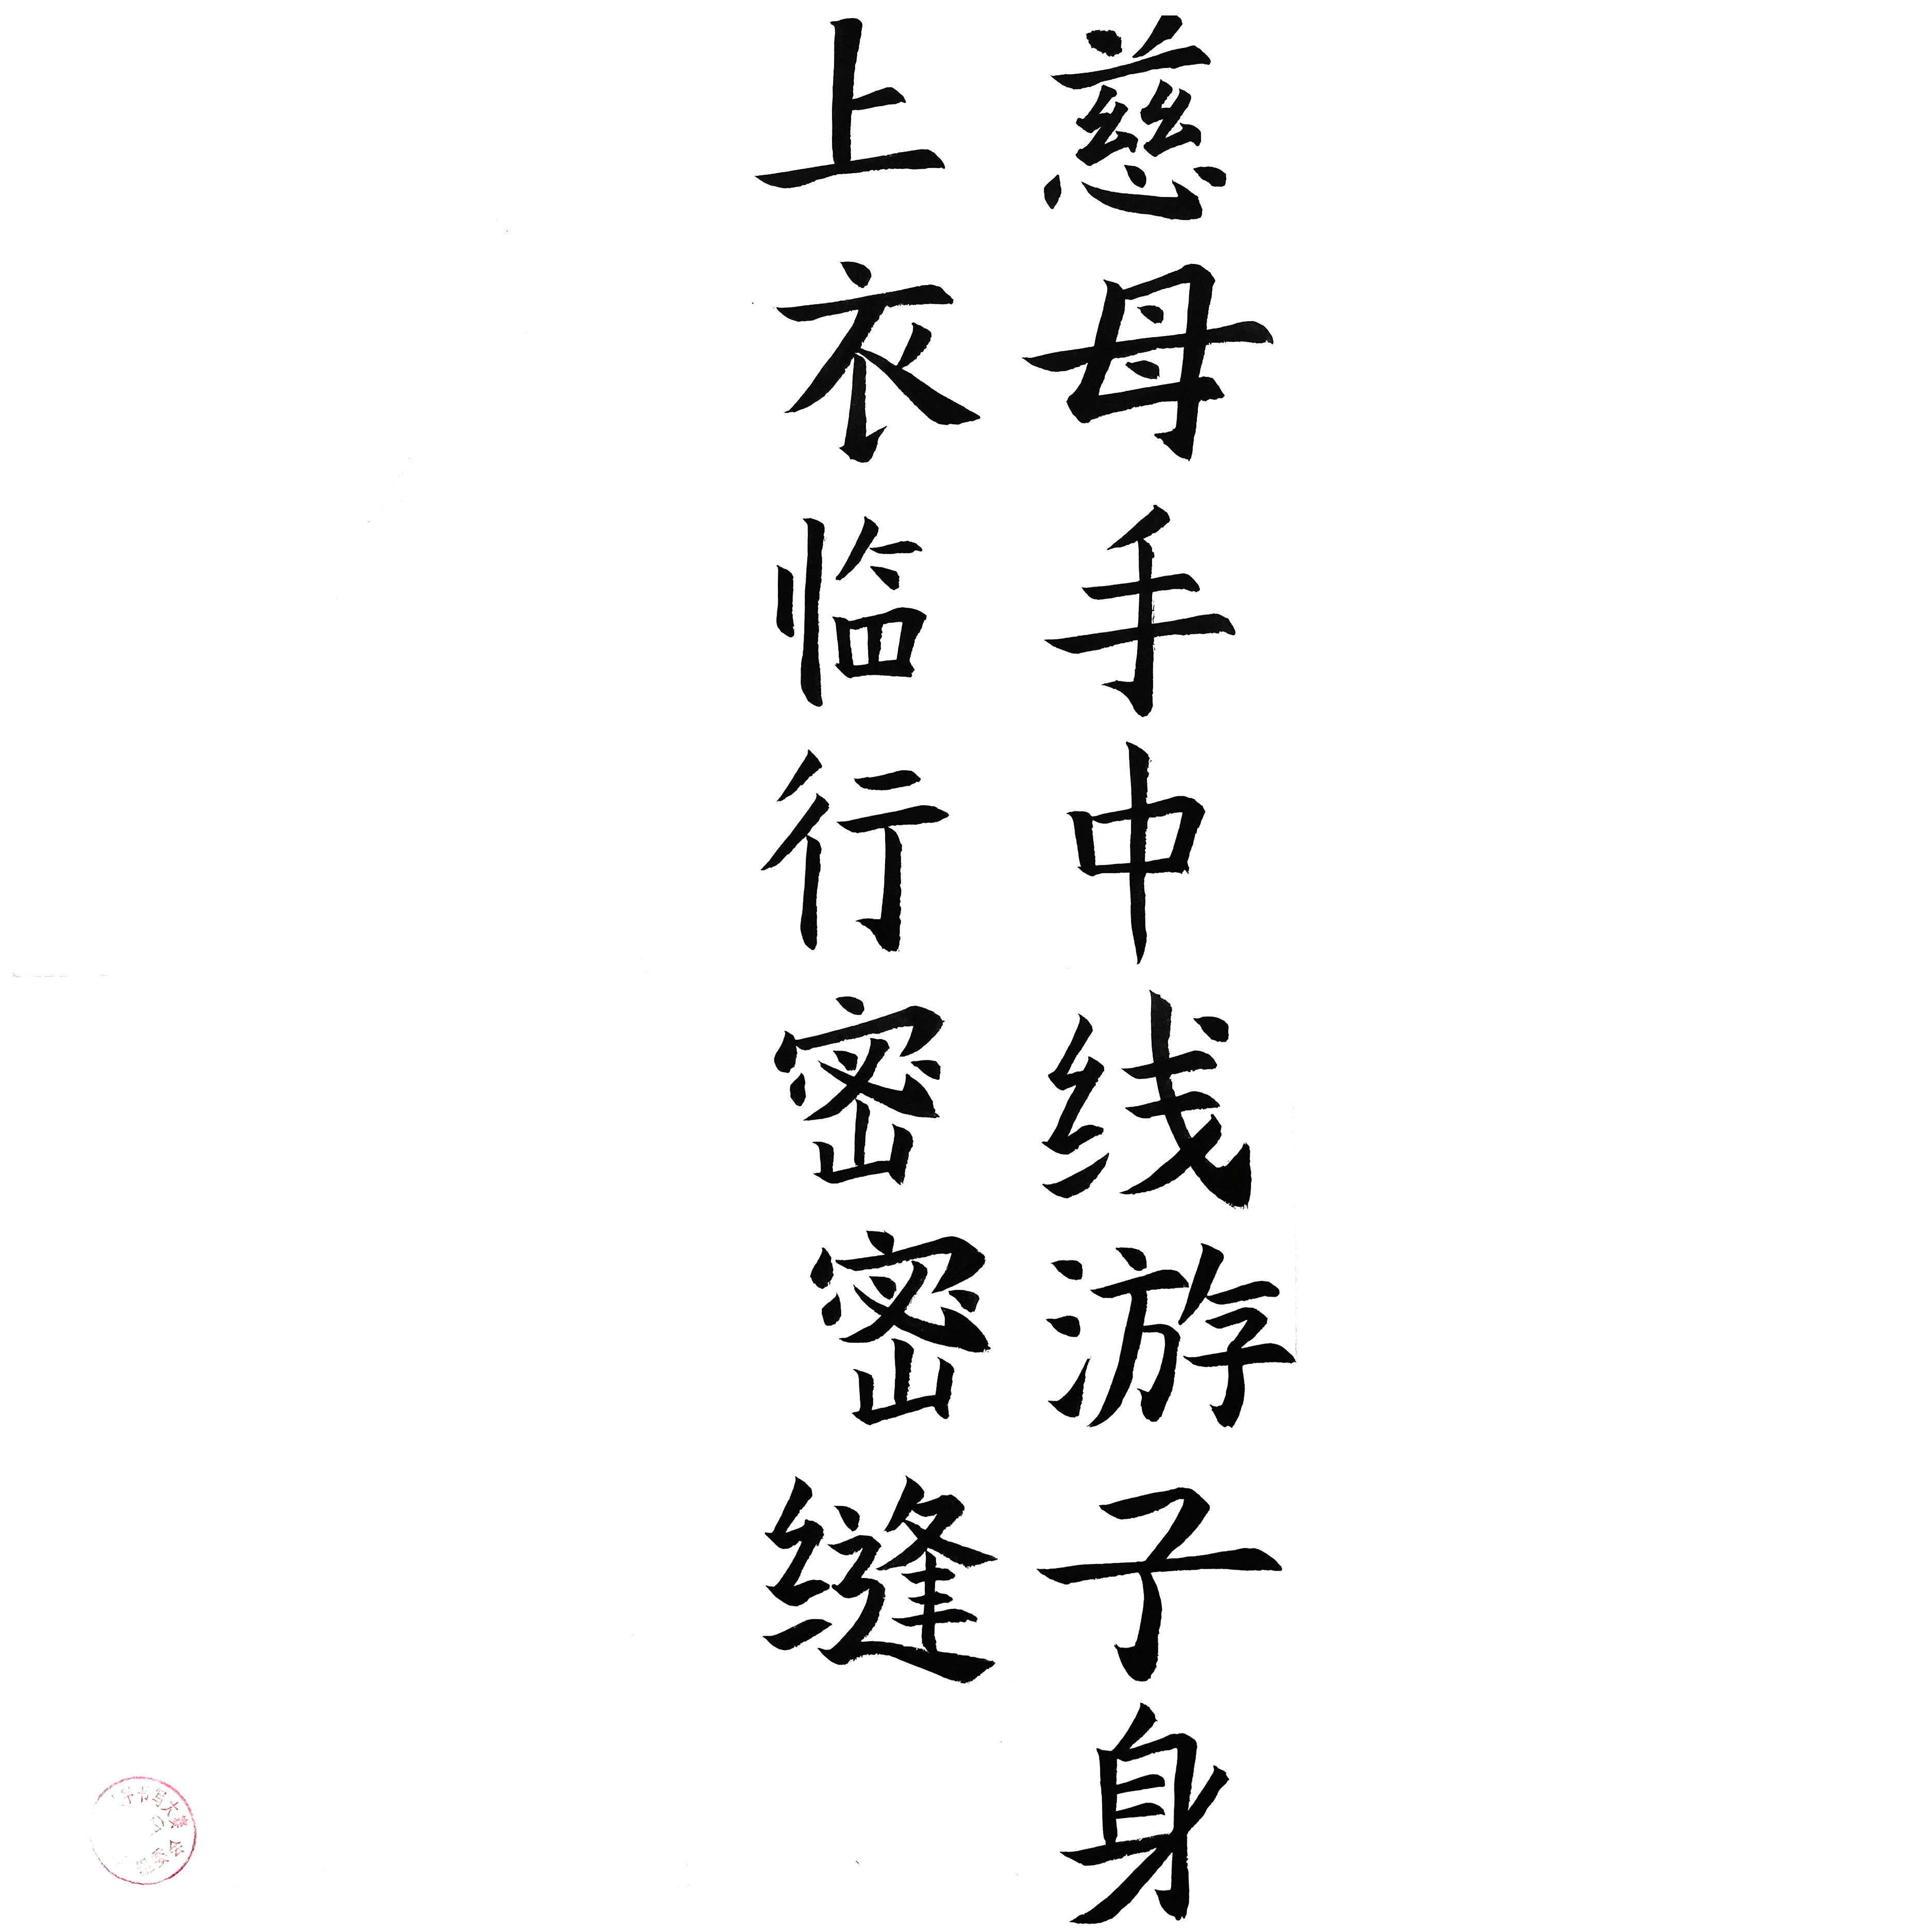 慈母手中线游子身
上衣临行密密缝